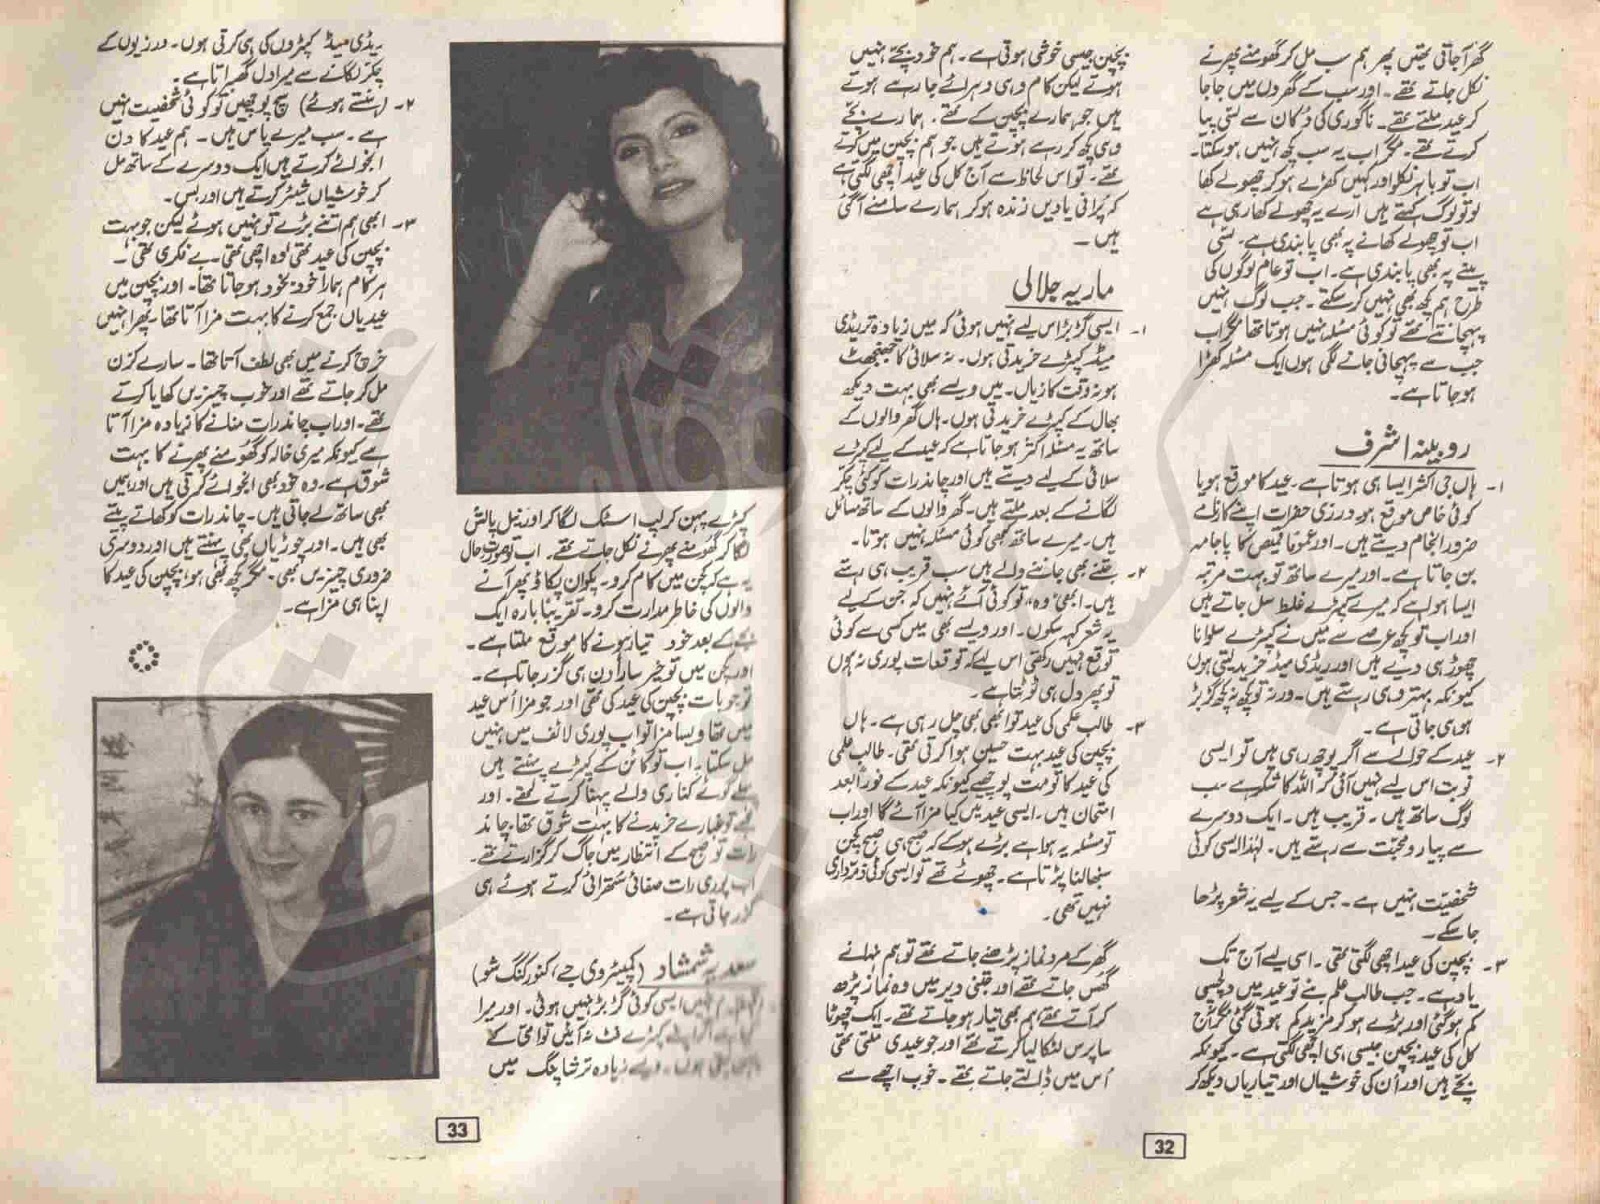 گھر آجاتی تھیں پھر ہم سب مل کر گھومنے پھرنے
نکل جاتے تھے۔ اور سب کے گھروں میں جا جا
کر عید ملتے تھے۔ ناگوری کی دُکان سے لسّی پیا
کرتے تھے۔ مگر اب یہ سب کچھ نہیں ہو سکتا۔
اب تو باہر نکلو اور کہیں کھڑے ہو کر چھولے کھا
لو تو لوگ کہتے ہیں ارے یہ چھولے کھا رہی ہے
اب تو چھولے کھانے پہ بھی پابندی ہے۔ لسّی
پینے پہ بھی پابندی ہے۔ اب تو عام لوگوں کی
طرح ہم کچھ بھی نہیں کر سکتے۔ جب لوگ نہیں
پہچانتے تھے تو کوئی مسئلہ نہیں ہوتا تھا مگر اب
جب سے پہچانی جانے لگی ہوں ایک مسئلہ کھڑا
ہو جاتا ہے۔
روبینہ اشرف
۱۔ ہاں جی اکثر ایسا ہی ہوتا ہے۔ عید کا موقع ہو یا
کوئی خاص موقع ہو، درزی حضرات اپنے کارنامے
ضرور انجام دیتے ہیں۔ اور عموماً قمیص کا پاجامہ
بن جاتا ہے۔ اور میرے ساتھ تو بہت مرتبہ
ایسا ہوا ہے کہ میرے کپڑے غلط سل جاتے ہیں
اور اب تو کچھ عرصے سے میں نے کپڑے سلوانا
چھوڑ ہی دیے ہیں اور ریڈی میڈ خرید لیتی ہوں
کیونکہ بہتر وہی رہتے ہیں۔ ورنہ تو کچھ نہ کچھ گڑبڑ
ہو ہی جاتی ہے۔
۲۔ عید کے حوالے سے اگر پوچھ رہی ہیں تو ایسی
نوبت اس لیے نہیں آئی کہ اللہ کا شکر ہے سب
لوگ ساتھ ہیں۔ قریب ہیں۔ ایک دوسرے
سے پیار و محبّت سے رہتے ہیں۔ لہٰذا ایسی کوئی
شخصیّت نہیں ہے۔ جس کے لیے یہ شعر پڑھا
جا سکے۔
۳۔ بچپن کی عید اچھی لگتی تھی۔ اسی لیے آج تک
یاد ہے۔ جب طالب علم بنے تو عید میں دلچسپی
کم ہو گئی اور بڑے ہو کر مزید کم ہوتی گئی مگر آج
کل کی عید بچپن جیسی ہی اچھی لگتی ہے۔ کیونکہ
بچّے ہیں اور اُن کی خوشیاں اور تیاریاں دیکھ کر
بچپن جیسی خوشی ہوتی ہے۔ ہم خود بچّے نہیں
ہوتے لیکن کام وہی دہرائے جا رہے ہوتے
ہیں جو ہمارے بچپن کے تھے۔ ہمارے بچّے
وہی کچھ کر رہے ہوتے ہیں جو ہم بچپن میں کرتے
تھے۔ تو اس لحاظ سے آج کل کی عید اچھی لگتی ہے
کہ پُرانی یادیں زندہ ہو کر ہمارے سامنے آ گئی
ہیں۔
ماریہ جلالی
۱۔ ایسی گڑبڑ اس لیے نہیں ہوتی کہ میں زیادہ تر ریڈی
میڈ کپڑے خریدتی ہوں۔ نہ سلائی کا جھنجھٹ
ہو نہ وقت کا زیاں۔ میں ویسے بھی بہت دیکھ
بھال کے کپڑے خریدتی ہوں۔ ہاں گھر والوں کے
ساتھ یہ مسئلہ اکثر ہو جاتا ہے کہ عید کے لیے کپڑے
سلائی کے لیے دیتے ہیں اور چاند رات کو کئی چکر
لگانے کے بعد ملتے ہیں۔ گھر والوں کے ساتھ مسائل
ہیں۔ میرے ساتھ کبھی کوئی مسئلہ نہیں ہوتا۔
۲۔ جتنے بھی جاننے والے ہیں سب قریب ہی رہتے
ہیں۔ ابھی 'وہ' تو کوئی آئے نہیں کہ جن کے لیے
یہ شعر کہہ سکوں۔ اور ویسے بھی میں کسی سے کوئی
توقع نہیں رکھتی اس لیے کہ توقعات پوری نہ ہوں
تو پھر دل ہی ٹوٹتا ہے۔
۳۔ طالب علمی کی عید تو ابھی بھی چل رہی ہے۔ ہاں
بچپن کی عید بہت حسین ہوا کرتی تھی۔ طالب علمی
کی عید کا تو مت پوچھیے کیونکہ عید کے فوراً بعد
امتحان ہیں۔ ایسی عید میں کیا مزا آئے گا اور اب
تو مسئلہ یہ ہوا ہے بڑے ہو کے کہ صبح ہی صبح کچن
سنبھالنا پڑتا ہے۔ چھوٹے تھے تو ایسی کوئی ذمّہ داری
نہیں تھی۔
گھر کے مرد نماز پڑھنے جاتے تھے تو ہم نہانے
گھُس جاتے تھے اور جتنی دیر میں وہ نماز پڑھ
کر آتے تھے ہم بھی تیار ہو جاتے تھے۔ ایک چھوٹا
سا پرس لٹکا لیا کرتے تھے اور جو عیدی ملتی تھی
اُس میں ڈالتے جاتے تھے۔ خوب اچھے سے
32
کپڑے پہن کر لپ اسٹک لگا کر اور نیل پالش
لگا کر گھومنے پھرنے نکل جاتے تھے۔ اب صورت حال
یہ ہے کہ کچن میں کام کرو۔ پکوان پکاؤ پھر آنے
والوں کی خاطر مدارت کرو۔ تقریباً بارہ ایک
بجے کے بعد خود تیار ہونے کا موقع ملتا ہے۔
اور کچن میں تو خیر سارا دن ہی گزر جاتا ہے۔
تو جو بات بچپن کی عید کی تھی اور جو مزا اُس عید
میں تھا ویسا مزا تو اب پوری لائف میں نہیں
مل سکتا۔ اب تو کاٹن کے کپڑے پہنتے ہیں
پہلے گوٹے کناری والے پہنا کرتے تھے۔ اور
تو غبارے خریدنے کا بہت شوق تھا۔ چاند
رات تو صبح کے انتظار میں جاگ کر گزارتے تھے۔
اب پوری رات صفائی ستھرائی کرتے ہوئے ہی
گزر جاتی ہے۔
سعدیہ شمشاد (کمپیئر وی جے، کنور کنگ شو)
نہیں ایسی کوئی گڑبڑ نہیں ہوتی۔ اور میرا
کپڑے فٹ نہ آئیں تو امّی کے
ہوں۔ ویسے زیادہ تر شاپنگ میں
ریڈی میڈ کپڑوں کی ہی کرتی ہوں۔ درزیوں کے
چکر لگانے سے میرا دل گھبراتا ہے۔
۲۔ (ہنستے ہوئے) سچ پوچھیں تو کوئی شخصیت نہیں
ہے۔ سب میرے پاس ہیں۔ ہم عید کا دن
انجوائے کرتے ہیں ایک دوسرے کے ساتھ مل
کر خوشیاں شیئر کرتے ہیں اور بس۔
۳۔ ابھی ہم اتنے بڑے تو نہیں ہوئے لیکن جو بہت
بچپن کی عید تھی وہ اچھی تھی۔ بے فکری تھی۔
ہر کام ہمارا خود بخود ہو جاتا تھا۔ اور بچپن میں
عیدیاں جمع کرنے کا بہت مزا آتا تھا۔ پھر انہیں
خرچ کرنے میں بھی لطف آتا تھا۔ سارے کزن
مل کر جاتے تھے اور خوب چیزیں کھایا کرتے
تھے۔ اور اب چاند رات منانے کا زیادہ مزا آتا
ہے کیونکہ میری خالہ کو گھومنے پھرنے کا بہت
شوق ہے۔ وہ خود بھی انجوائے کرتی ہیں اور ہمیں
بھی ساتھ لے جاتی ہیں۔ چاند رات کو کھاتے پیتے
بھی ہیں۔ اور چوڑیاں بھی پہنتے ہیں اور دوسری
ضروری چیزیں بھی۔ مگر کچھ بھی ہو، بچپن کی عید کا
اپنا ہی مزا ہے۔
33